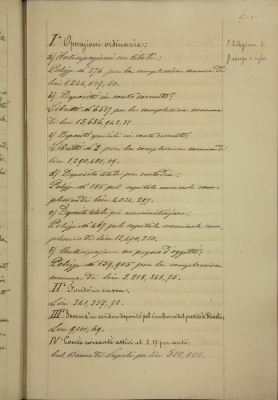 I.° Operazioni ordinarie:
a) Anticipazioni su titoli:
Polizze N° 276 per la complessiva somma di
lire 1.244.039,50.
b) Depositi in conto corrente:
Libretti N° 6517 per la complessiva somma
di lire 15.686.942,22
c) Depositi speciali in conto corrente:
Libretti N° 2 per la complessiva somma di
lire 1.290.480,09.
d) Deposito titoli per custodia:
Polizze N° 185 pel capitale nominale com-
plessivo di lire 4.024.297.
e) Deposito titoli per amministrazione:
Polizze N° 467 pel capitale nominale com-
plessivo di lire 12.490.250.
f) Anticipazione su pegno d'oggetti:
Polizze N° 139.905 per la complessiva
somma di lire 3.208.261,25.
II.° Fondo in cassa:
Lire 341.357,50.
III.°
Lire 9.001,69.
IV. Conti correnti attivi al 2,17 per cento:
Col Banco di Napoli per lire 500.000.